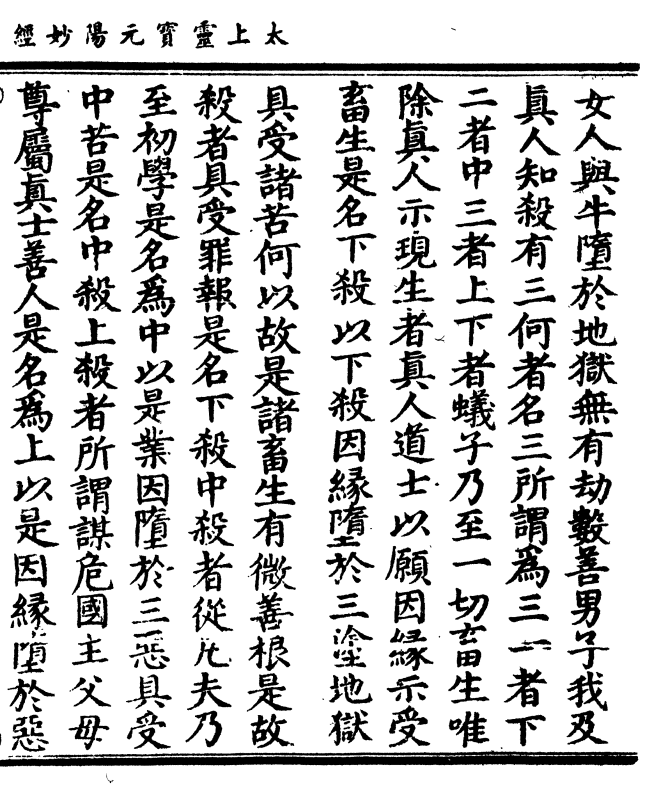 太上靈寶元陽妙經
女人與牛墮於地獄無有劫數善男子我及
眞人知殺有三何者名三所謂爲三一者下
二者中三者上下者蟻子乃至一切畜生唯
除眞人示現生者眞人道士以願因緣示受
畜生是名下殺以下殺因緣墮於三塗地獄
具受諸苦何以故是諸畜生有微善根是故
殺者具受罪報是名下殺中殺者從凡夫乃
至初學是名爲中以是業因墮於三惡具受
中苦是名中殺上殺者所謂謀危國主父母
尊屬眞士善人是名爲上以是因緣墮於惡